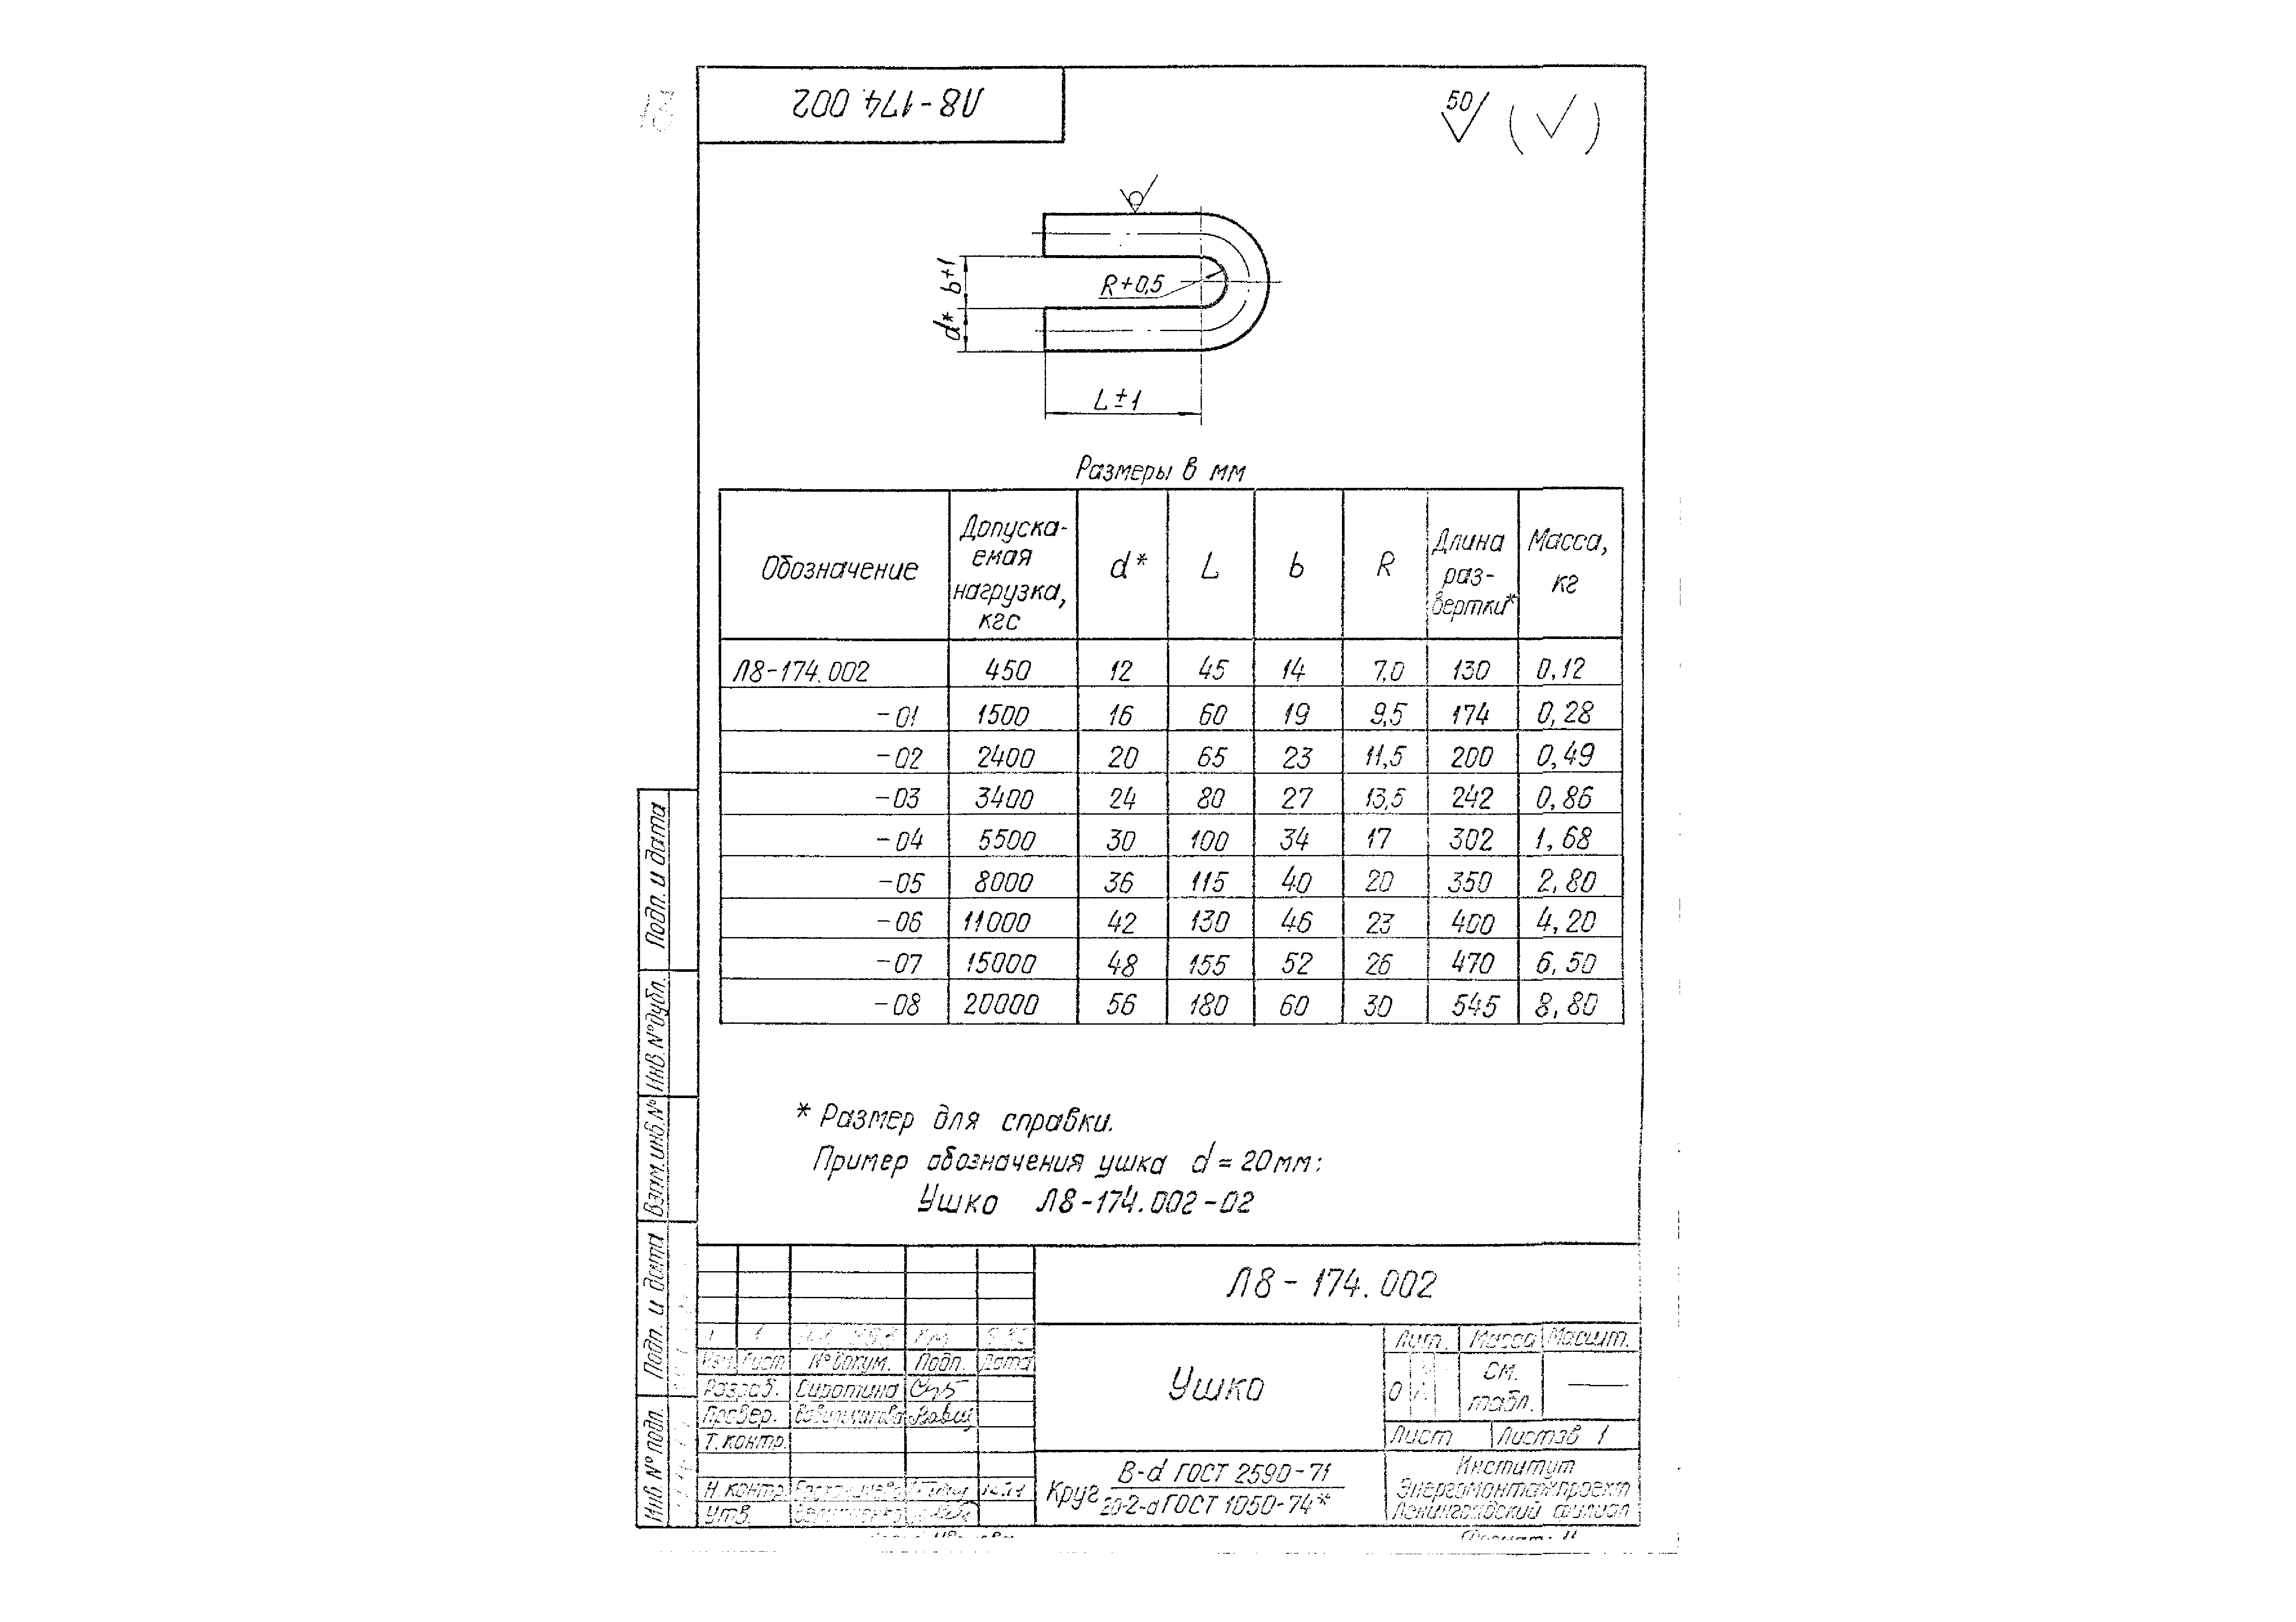 Л8-174.002
50 ( )
b+1
R+0,5
d*
L±1
Размеры в мм
Обозначение Допускаемая нагрузка, кгс d* L b R Длина развертки* Масса, кг
Л8-174.002 450 12 45 14 7,0 130 0,12
-01 1500 16 60 19 9,5 174 0,28
-02 2400 20 65 23 11,5 200 0,49
-03 3400 24 80 27 13,5 242 0,86
-04 5500 30 100 34 17 302 1,68
-05 8000 36 115 40 20 350 2,80
-06 11000 42 130 46 23 400 4,20
-07 15000 48 155 52 26 470 6,50
-08 20000 56 180 60 30 545 8,80
* Размер для справки.
Пример обозначения ушка d=20мм:
Ушко Л8-174.002-02
Подп. и дата
Инв. № дубл.
Взам. инв. №
Подп. и дата
Инв № подл
Л8-174.002
Изм. Лист № докум. Подп. Дата
Разраб. Сиротина
Провер.
Т. контр.
Н. контр.
Утв.
Ушко
Лит. Масса Масшт.
См. табл.
Лист Листов 1
Круг В-d ГОСТ 2590-71
20-2-а ГОСТ 1050-74*
Институт
Энергомонтажпроект
Ленинградский филиал